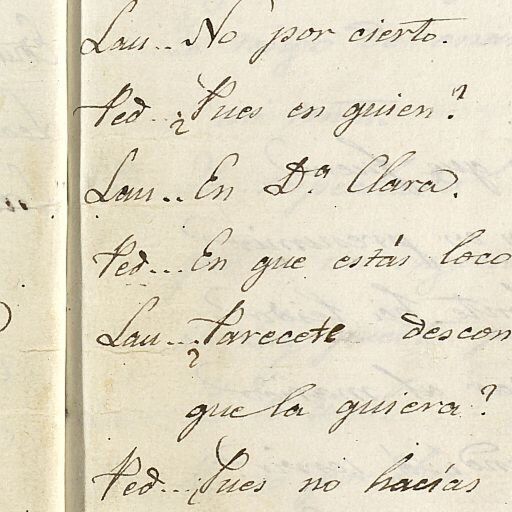 Lau... No por cierto.
Ped... ¿Pues en quien?
Lau... En Dª Clara.
Ped... En que estás loco
Lau... ¿Parecete descon
que la quiera?
Ped... ¿Pues no hacías